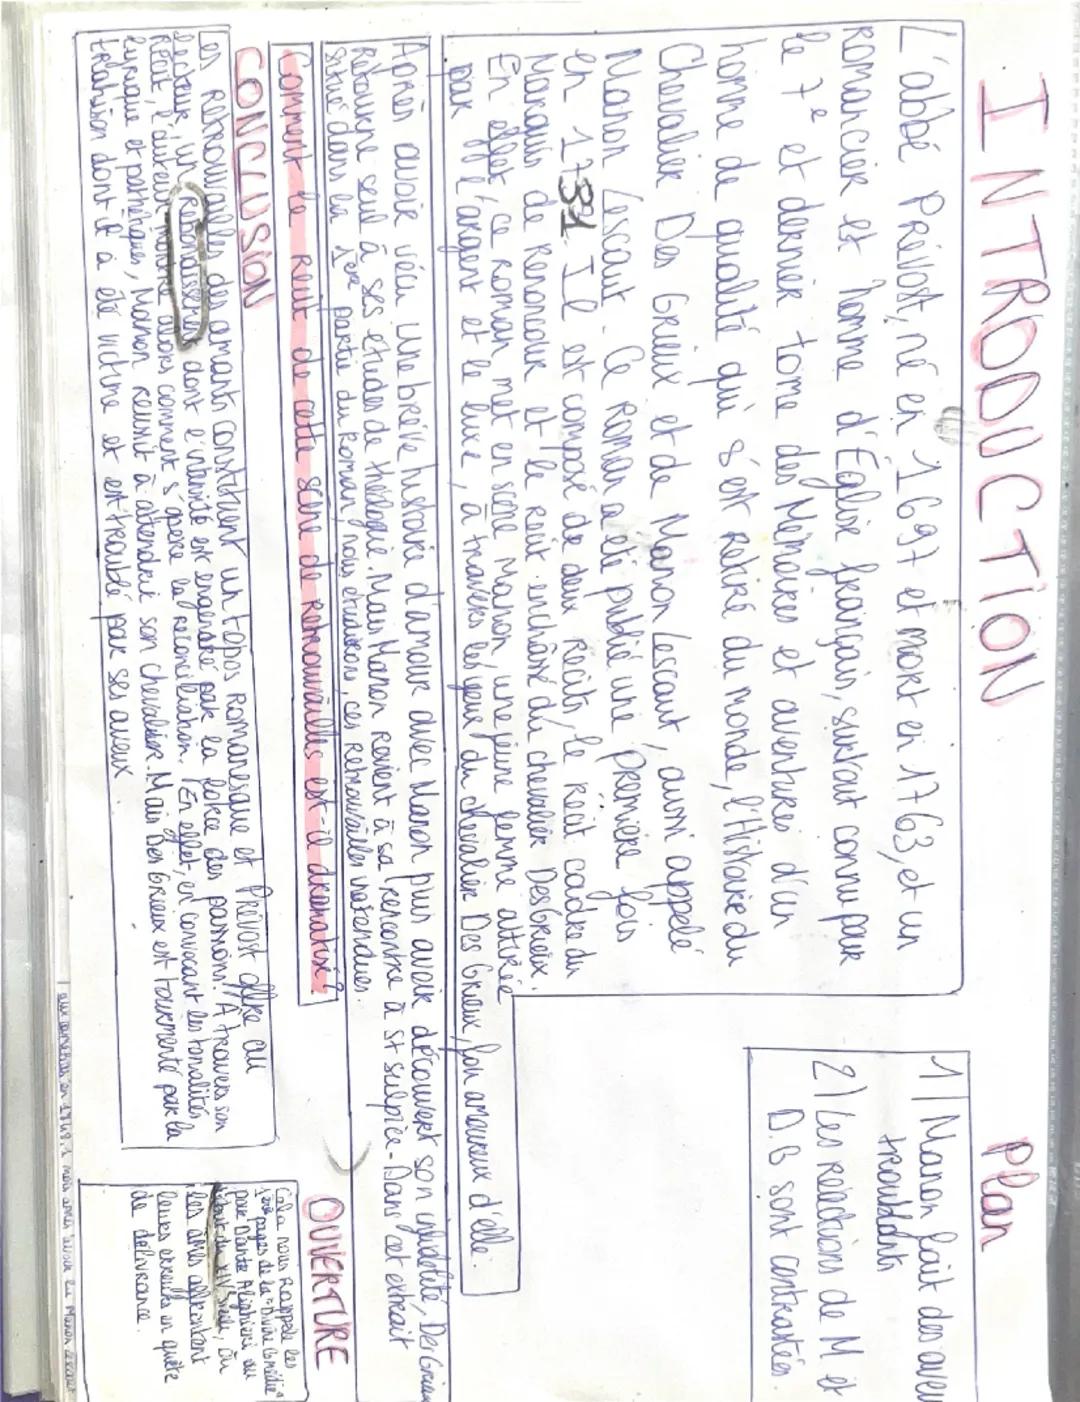 INTRODUCTION
L'abbé Prévost, né en 1697 et mort en 1763, et un
romancier et homme d'Église français, surtout connu par
le 7e et dernier tome des Mémoires et aventures d'un
homme de qualité qui s'est retiré du monde, l'Histoire du
Chevalier Des Grieux et de Manon Lescaut, aussi appelé
Manon Lescaut. Ce roman a été publié une première fois
en 1731. Il est composé de deux récits, le récit cadre du
Marquis de Renoncour et le récit enchâssé du chevalier Des Grieux.
En effet, ce roman met en scène Manon, une jeune femme attirée
par l'argent et le luxe, à travers les yeux du chevalier Des Grieux, fou amoureux d'elle.
Après avoir vécu une brève histoire d'amour avec Manon puis avoir découvert son infidélité, Des Grieux
retourne seul à ses études de théologie. Mais Manon revient à sa rencontre à St Sulpice. Dans cet extrait
situé dans la 1ère partie du roman, nous étudirons ces retrouvailles inatendues.
Comment le récit de cette scène de retrouvailles est-il dramatisé?
CONCLUSION
Les retrouvailles des amants constituent un topos romanesque et Prévost offre au
lecteur, un dont l'intensité est engendré par la force des passions. A travers son
récit, l'auteur montre alors comment s'opère la réconciliation. En effet, en convocant les tonalités
lyrique et pathétiques, Manon reussit à attendrir son chevalier. Mais Des Grieux est tourmenté par la
trahison dont il a été victime et est troublé par ses aveux
Plan
1) Manon fait des aveu
troublants
2) Les réactions de M et
D.G sont contrastées.
OUVERTURE
Cela nous rappele les
1ère pages de la "Divine Comédie"
par Dante Alighieri au
début du XIV siècle, où
les âmes affrontent
leurs erreurs en quête
de délivrance.